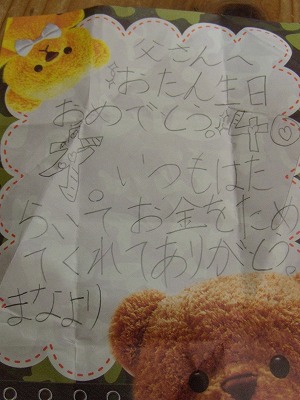 父さんへ
おたん生日
おめでとう。
。いつもはた
らいてお金をため
てくれてありがとう。
まなより